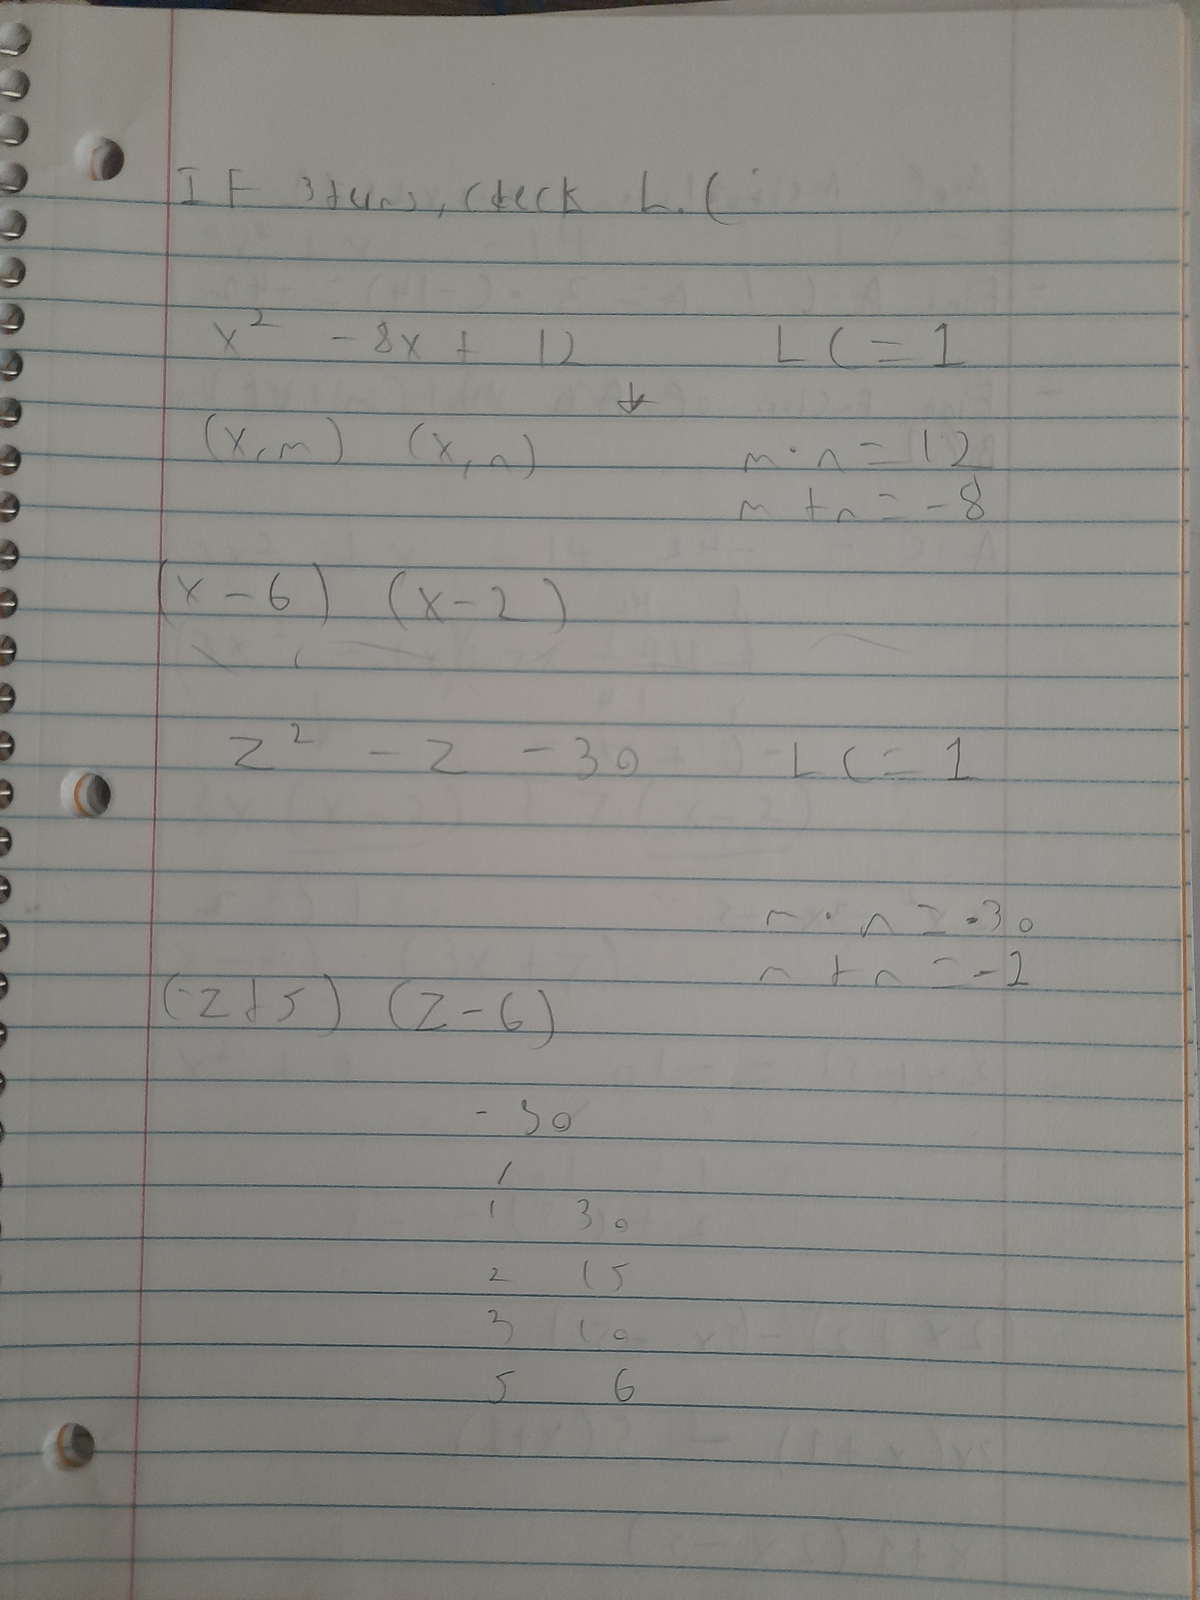 IF 3 terms, check L.C
x² - 8x + 12 LC = 1
↓
(x, m) (x, n) m · n = 12
m + n = -8
(x - 6) (x - 2)
z² - z - 30 LC = 1
m · n = -30
m + n = -1
(-z + 5) (z - 6)
- 30
/
1 30
2 15
3 10
5 6